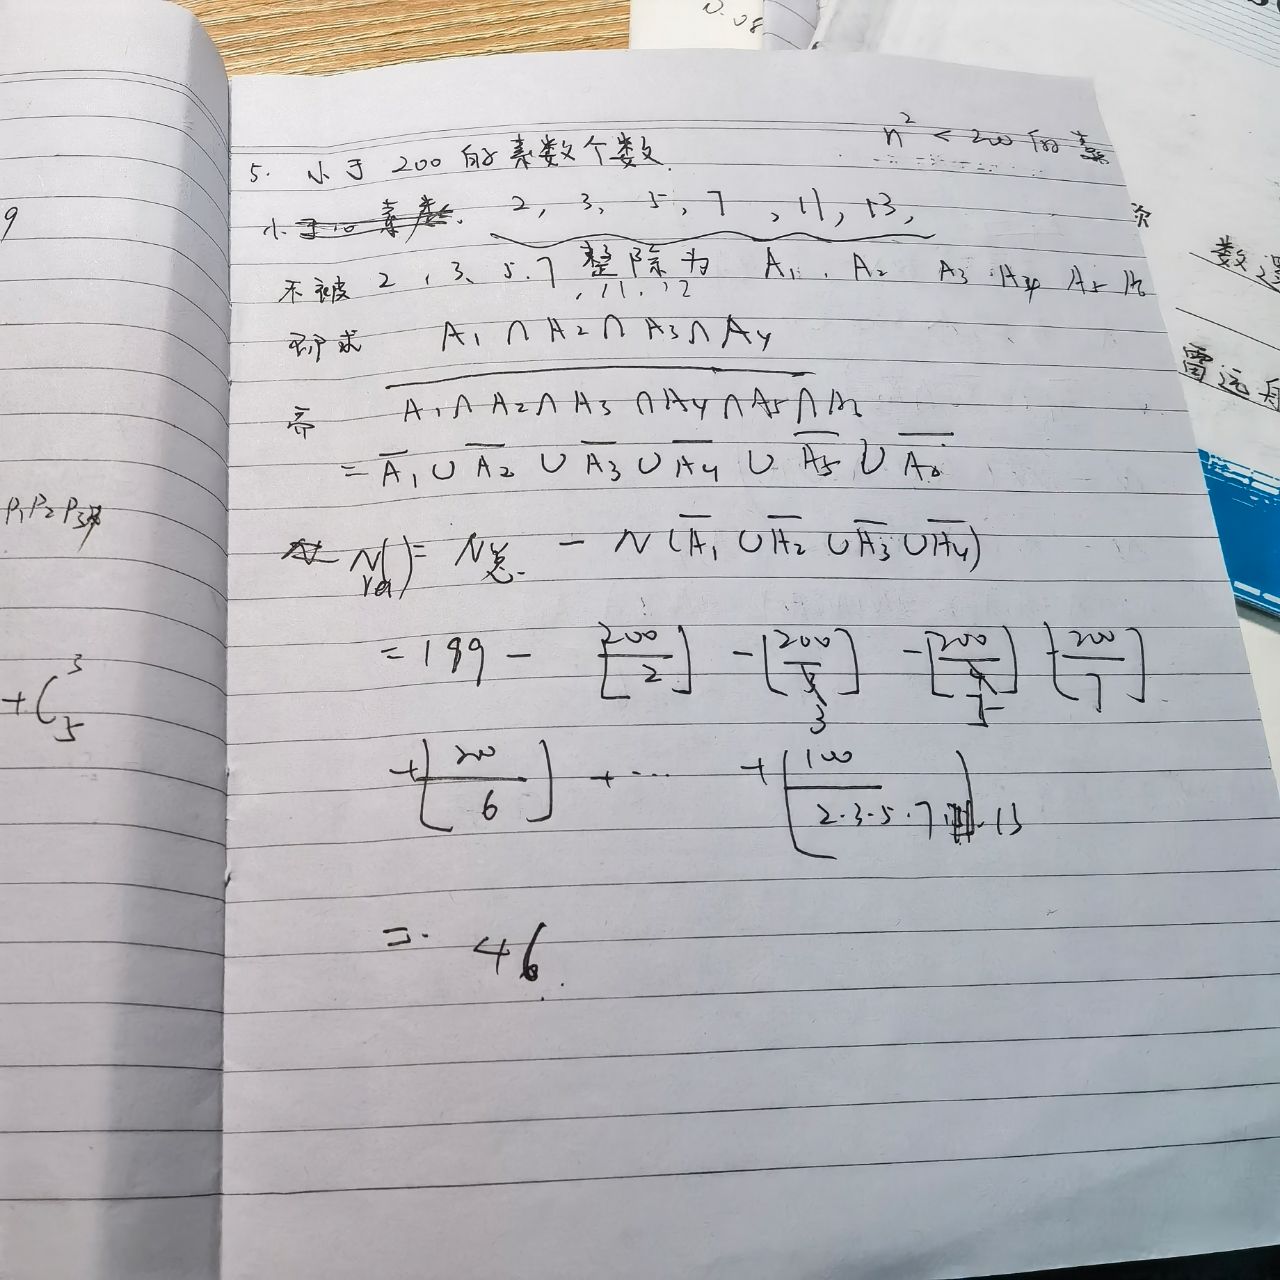 5. 小于 200 的素数个数
n² < 200 的素
小于10素数. 2, 3, 5, 7, 11, 13,
不被 2, 3, 5, 7 整除为 A₁, A₂ A₃, A₄ A₅ A₆
, 11, 13
即求 A₁ ∩ A₂ ∩ A₃ ∩ A₄
A₁ ∩ A₂ ∩ A₃ ∩ A₄ ∩ A₅ ∩ A₆
= A̅₁ ∪ A̅₂ ∪ A̅₃ ∪ A̅₄ ∪ A̅₅ ∪ A̅₆
N( ) = N总 - N(A̅₁ ∪ A̅₂ ∪ A̅₃ ∪ A̅₄)
= 199 - [200/2] - [200/3] - [200/5] - [200/7]
+ [200/6] + ⋯ + [100/2·3·5·7·11·13]
= 46
9
P₁P₂P₃
+C₅³
数
雷远